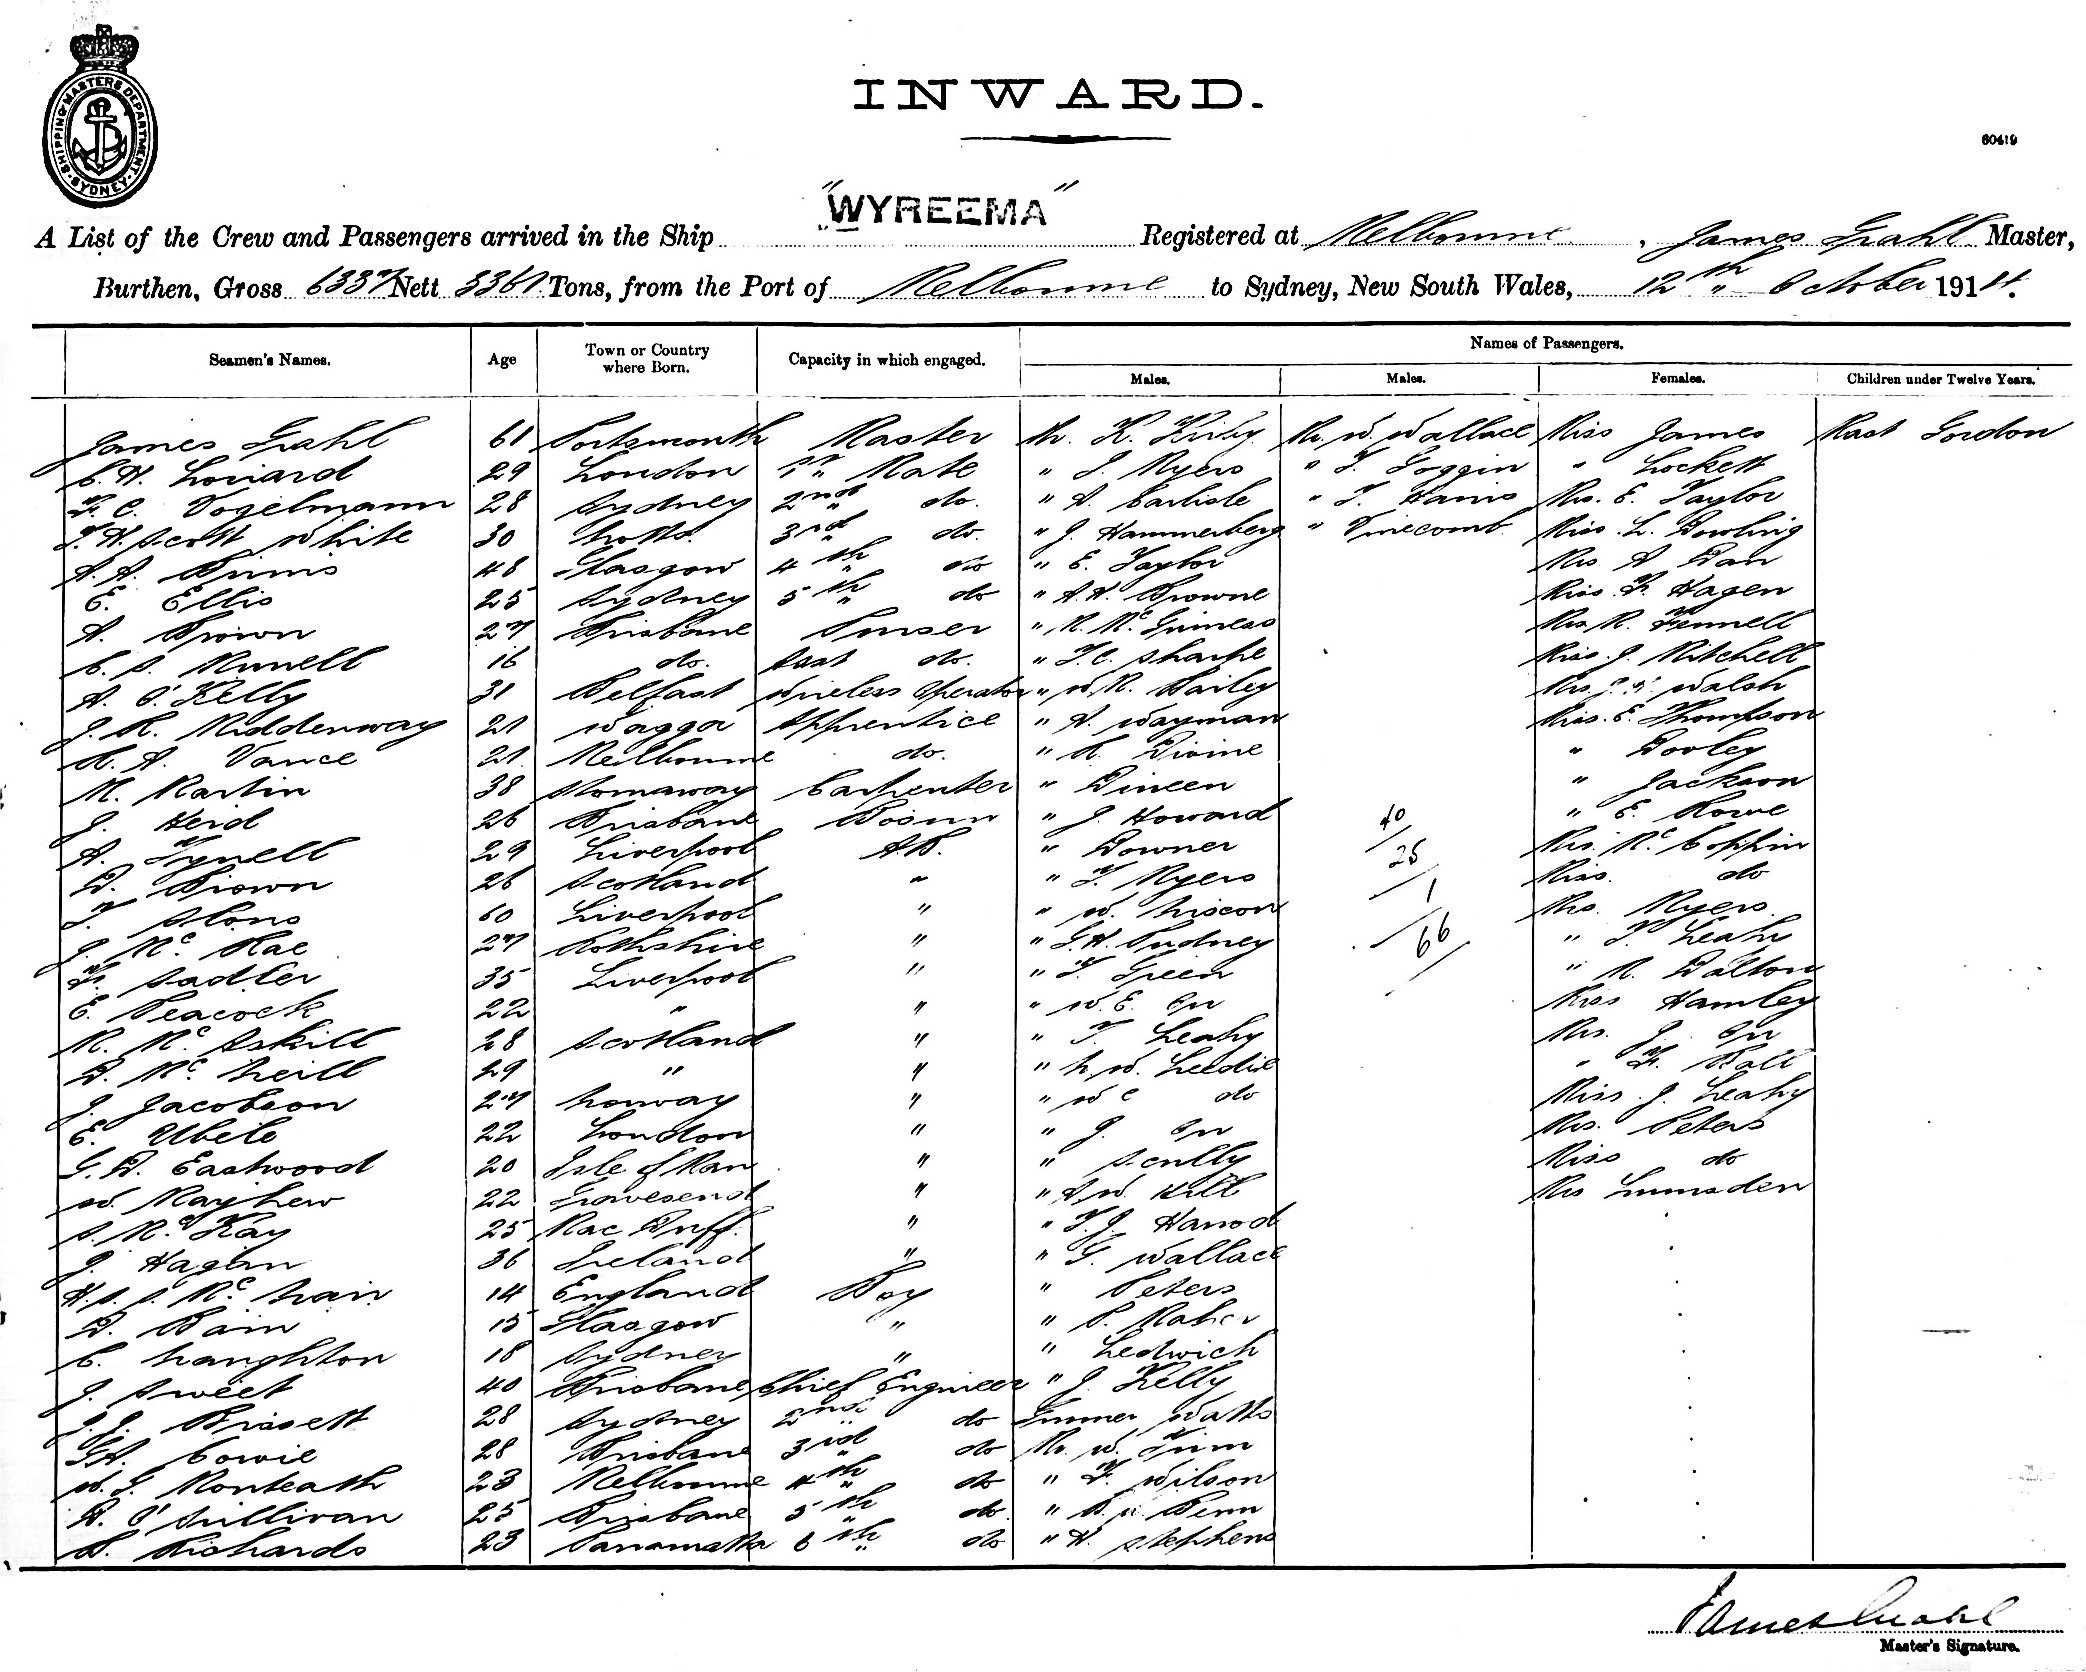 SHIPPING MASTERS DEPARTMENT. SYDNEY.
INWARD.
60419
A List of the Crew and Passengers arrived in the Ship "WYREEMA" Registered at Melbourne, James Grahl Master,
Burthen, Gross 6337 Nett 3361 Tons, from the Port of Melbourne to Sydney, New South Wales, 12th October 1914.
Seamen's Names. Age Town or Country where Born. Capacity in which engaged. Names of Passengers.
Males. Males. Females. Children under Twelve Years.
James Grahl 61 Portsmouth Master Mr. K. Kirby Mr. W. Wallace Miss James Mast Gordon
C. H. London 1st Mate " J. Myers " T. Goggin " Lockett
F. C. Vogelmann 28 Sydney 2nd do. " A. Carlisle " T. Harris Mrs. E. Taylor
T. H. Scott White 30 Notts. 3rd do. " J. Hammerberg " Vinecomb Miss. L. Dowling
A. A. Binns 48 Glasgow 4th do " E. Taylor Mrs A Dan
E. Ellis 25 Sydney 5th do " A. H. Browne Miss. F. Hagen
A. Brown 27 Brisbane Purser " R. McGuiness Mrs R. Fennell
C. S. 16 do. Asst do. " T. C. Sharpe Miss. J. Mitchell
A. O'Kelly 31 Belfast Wireless Operator " W. R. Bailey Mrs. Walsh
J. R. Middenway 21 Wagga Apprentice " A. Wayman Miss. E. Thompson
R. A. Vance 21 Melbourne do. " R. Divine " Dooley
M. Martin 38 Stornaway Carpenter " Dineen " Jackson
J. Heid 26 Brisbane Bosun " J. Howard 40 " E. Rowe
A. Tynell 29 Liverpool A.B. " Downer 25 Mrs. McCoppin
D. Brown 26 Scotland " " T. Myers 1 Miss. do
T. Slons 60 Liverpool " " W. Niscon Mrs. Myers
J. McRae 27 Rothshire " " G. H. Pudney 66 " T. Leahy
F. Sadler 35 Liverpool " " T. Green " R. Dalton
E. Peacock 22 " " " W. E. Orr Miss Hamley
R. McAskill 28 Scotland " " T. Leahy Mrs. J. Orr
D. McNeill 29 " " " N. W. Leedie " F. Ball
J. Jacobson 27 Norway " " W C do Miss. J. Leahy
E. Ubele 22 London " " J. Orr Mrs. Peters
G. D. Eastwood 20 Isle of Man " " Scully Miss do
W. Mayhew 22 Gravesend " " A. W. Hill Mrs Lumsden
S. McKay 25 Mac Duff. " " T. J. Harrod
J. Hagan 36 Ireland " " G. Wallace
H. S. S. McNair 14 England Boy " Peters
D. Bain 15 Glasgow " " P. Maher
C. Naughton 18 Sydney " " Ledwich
J. Sweet 40 Brisbane Chief Engineer " J. Kelly
J. J. Bissett 28 Sydney 2nd do Gunner Watts
G. A. Cowie 28 Brisbane 3rd do Mr. W. Trim
W. G. Monteath 23 Melbourne 4th do " F. Wilson
D. O'Sullivan 25 Brisbane 5th do. " Benn
Richards 23 Parramatta 6th do " H. Stephens
James Grahl
Master's Signature.